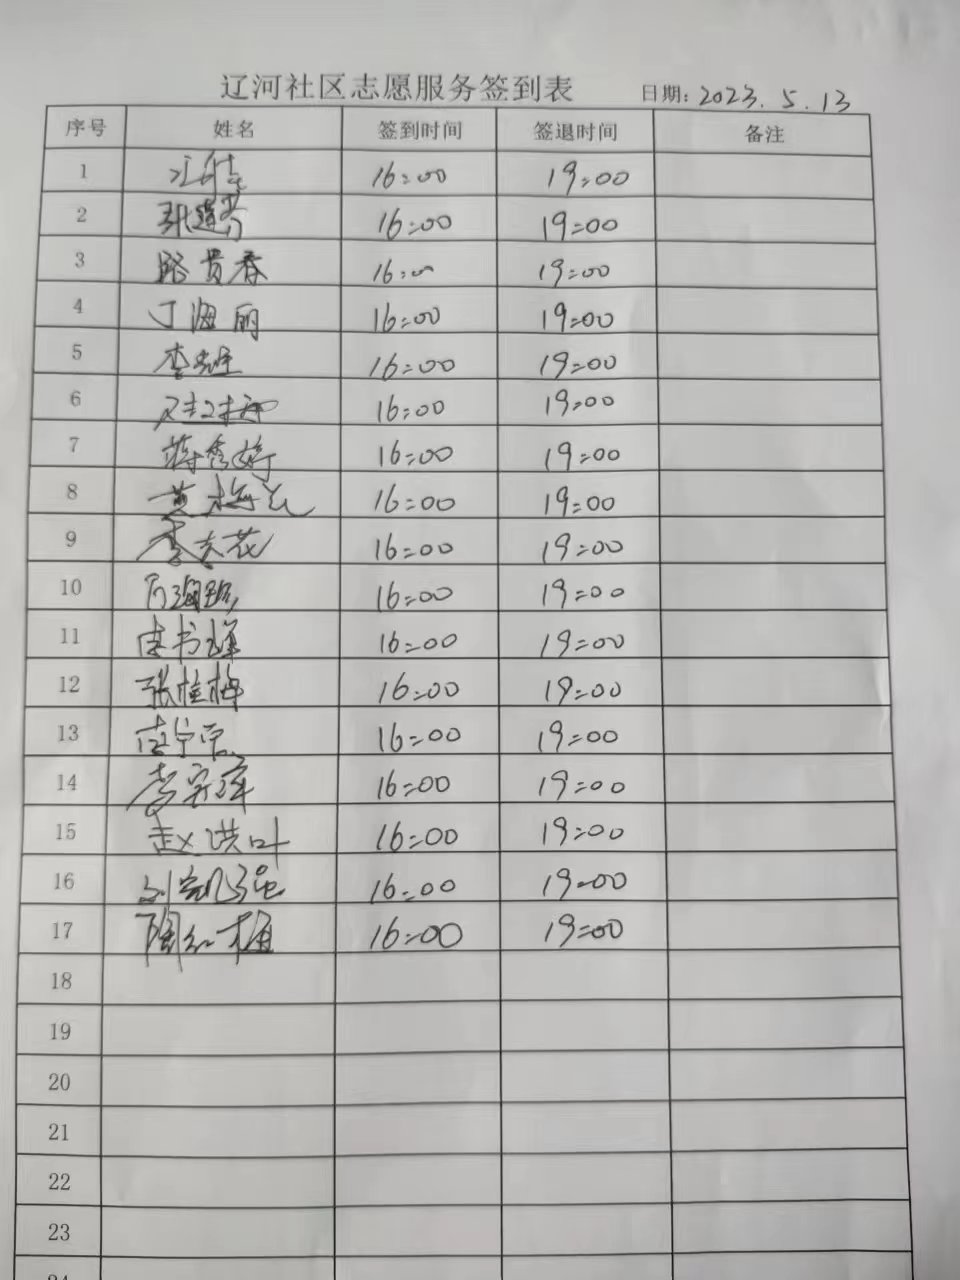 辽河社区志愿服务签到表 日期: 2023.5.13
序号 姓名 签到时间 签退时间 备注
1 16:00 19:00
2 16:00 19:00
3 路贵春 16:00 19:00
4 丁海丽 16:00 19:00
5 16:00 19:00
6 16:00 19:00
7 蒋秀婷 16:00 19:00
8 黄梅花 16:00 19:00
9 16:00 19:00
10 16:00 19:00
11 16:00 19:00
12 张桂梅 16:00 19:00
13 16:00 19:00
14 16:00 19:00
15 赵洪叶 16:00 19:00
16 16:00 19:00
17 陶红梅 16:00 19:00
18
19
20
21
22
23
24